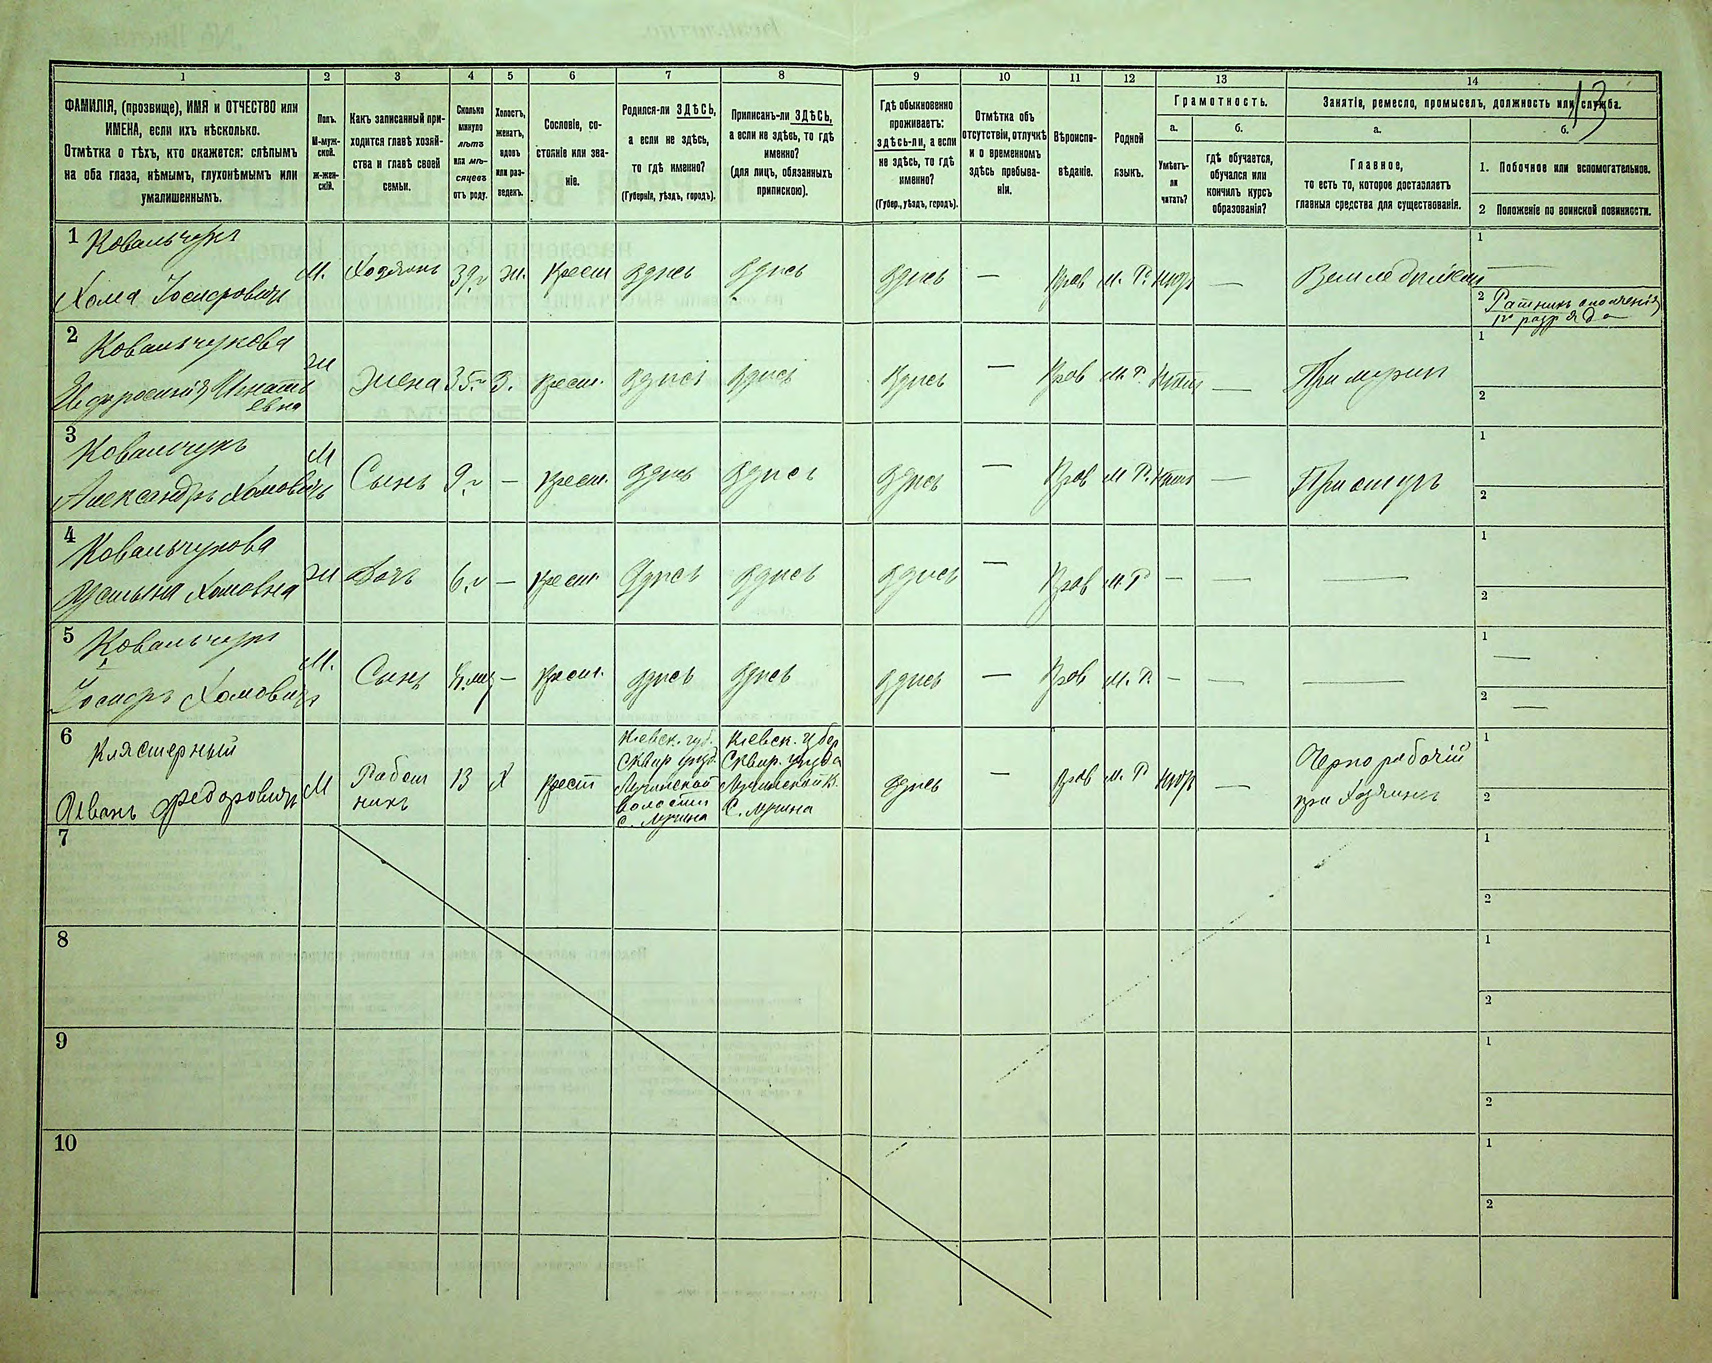 13
1 2 3 4 5 6 7 8 9 10 11 12 13 14
ФАМИЛІЯ, (прозвище), ИМЯ и ОТЧЕСТВО или
ИМЕНА, если ихъ нѣсколько.
Отмѣтка о тѣхъ, кто окажется: слѣпымъ
на оба глаза, нѣмымъ, глухонѣмымъ или
умалишеннымъ.
Полъ.
М-муж-
ской.
ж-жен-
скій.
Какъ записанный при-
ходится главѣ хозяй-
ства и главѣ своей
семьи.
Сколько
минуло
лѣтъ
или мѣ-
сяцевъ
отъ роду.
Холостъ,
женатъ,
вдовъ
или раз-
веденъ.
Сословіе, со-
стояніе или зва-
ніе.
Родился-ли ЗДѢСЬ,
а если не здѣсь,
то гдѣ именно?
(Губернія, уѣздъ, городъ).
Приписанъ-ли ЗДѢСЬ,
а если не здѣсь, то гдѣ
именно?
(для лицъ, обязанныхъ
припискою).
Гдѣ обыкновенно
проживаетъ:
здѣсь-ли, а если
не здѣсь, то гдѣ
именно?
(Губер., уѣздъ, городъ).
Отмѣтка объ
отсутствіи, отлучкѣ
и о временномъ
здѣсь пребыва-
ніи.
Вѣроиспо-
вѣданіе.
Родной
языкъ.
Грамотность.
а.
Умѣетъ-
ли
читать?
б.
гдѣ обучается,
обучался или
кончилъ курсъ
образованія?
Занятія, ремесло, промыселъ, должность или служба.
а.
Главное,
то есть то, которое доставляетъ
главныя средства для существованія.
б.
1. Побочное или вспомогательное.
2 Положеніе по воинской повинности.
1 Ковальчукъ
Хома Іосифовичъ
М. Хозяинъ 39 г ж. Крест Здѣсь Здѣсь Здѣсь — Прав М. Р. — Земледѣлецъ
1 —
2 Ратникъ ополченія
1го разряда
2 Ковальчукова
Ж Жена 35 г З. Крест. Здѣсь Здѣсь Здѣсь — Прав М. Р. — При мужѣ
1
2
3 Ковальчукъ
Александръ Хомовичъ
М Сынъ 9 г — Крест. Здѣсь Здѣсь Здѣсь — Прав М Р. — При отцѣ
1
2
4 Ковальчукова
Устына Хомовна
Ж Дочь 6 г — Крест. Здѣсь Здѣсь Здѣсь — Прав М. Р — — —
1
2
5 Ковальчукъ
Іосифъ Хомовичъ
М. Сынъ — Крест. Здѣсь Здѣсь Здѣсь — Прав М. Р. — — —
1 —
2 —
6 Клястерный
Иванъ Федоровичъ
М Работ
никъ
13 Х Крест
Кіевск. губ.
Сквир уѣзд.
волости
Кіевск. губер
Сквир. уѣзда
Здѣсь — Прав М. Р —
Чернорабочій
при хозяинѣ
1
2
7
1
2
8
1
2
9
1
2
10
1
2